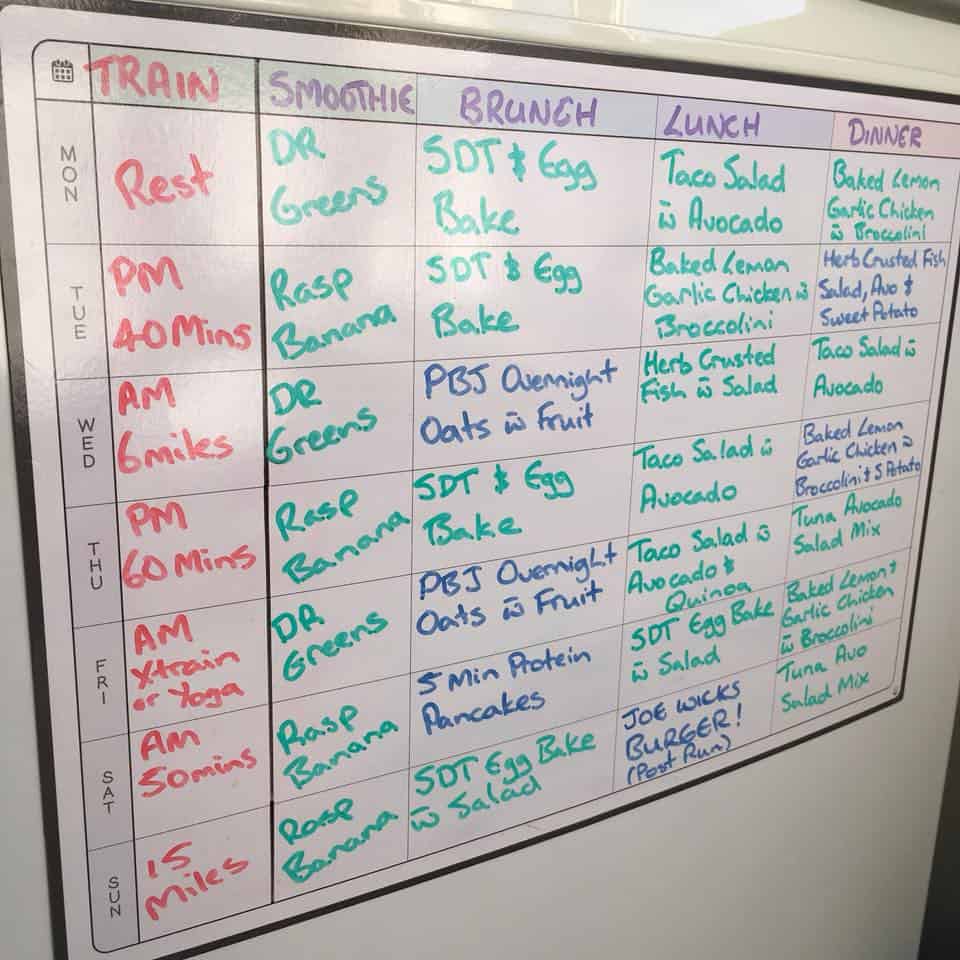 TRAIN SMOOTHIE BRUNCH LUNCH DINNER
MON
Rest
DR
Greens
SDT & Egg
Bake
Taco Salad
w̄ Avocado
Baked Lemon
Garlic Chicken
w̄ Broccolini
TUE
PM
40 Mins
Rasp
Banana
SDT & Egg
Bake
Baked Lemon
Garlic Chicken w̄
Broccolini
Herb Crusted Fish
Salad, Avo &
Sweet Potato
WED
AM
6 miles
DR
Greens
PBJ Overnight
Oats w̄ Fruit
Herb Crusted
Fish w̄ Salad
Taco Salad w̄
Avocado
THU
PM
60 Mins
Rasp
Banana
SDT & Egg
Bake
Taco Salad w̄
Avocado
Baked Lemon
Garlic Chicken w̄
Broccolini & S Potato
FRI
AM
Xtrain
or Yoga
DR
Greens
PBJ Overnight
Oats w̄ Fruit
Taco Salad w̄
Avocado &
Quinoa
Tuna Avocado
Salad Mix
SAT
AM
50 mins
Rasp
Banana
5 Min Protein
Pancakes
SDT Egg Bake
w̄ Salad
Baked Lemon +
Garlic Chicken
w̄ Broccolini
SUN
15
Miles
Rasp
Banana
SDT Egg Bake
w̄ Salad
JOE WICKS
BURGER!
(Post Run)
Tuna Avo
Salad Mix